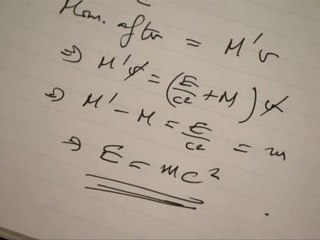 Mom. after = M'v
⇒ M'v = (E/c² + M) v
⇒ M' - M = E/c² = m
⇒ E = mc²